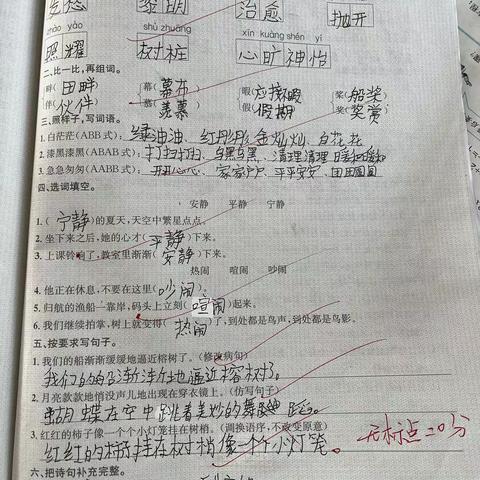 治愈 抛开
zhào yào shù zhuāng xīn kuàng shén yí
照耀 树桩 心旷神怡
二、比一比，再组词。
畔(田畔 幕(幕布 暇(应接暇 桨(船桨
伴(伙伴 慕(羡慕 假(假期 奖(奖赏
三、照样子，写词语。
1. 白茫茫(ABB 式)：绿油油、红彤彤、金灿灿、白花花
2. 漆黑漆黑(ABAB 式)：打扫打扫、乌黑乌黑、清理清理、暖和暖和
3. 急急匆匆(AABB 式)：开开心心、家家户户、平平安安、团团圆圆
四、选词填空。
安静 平静 宁静
1.（宁静）的夏天，天空中繁星点点。
2. 坐下来之后，她的心才（平静）下来。
3. 上课铃响了，教室里渐渐（安静）下来。
热闹 喧闹 吵闹
4. 他正在休息，不要在这里（吵闹）。
5. 归航的渔船一靠岸，码头上立刻（喧闹）起来。
6. 我们继续拍掌，树上就变得（热闹）了，到处都是鸟声，到处都是鸟影。
五、按要求写句子。
1. 我们的船渐渐缓缓地逼近榕树了。（修改病句）
我们的船渐渐地逼近榕树了。
2. 月亮款款地悄没声儿地出现在穿衣镜上。（仿写句子）
蝴蝶在空中跳着美妙的舞
3. 红红的柿子像一个个小灯笼挂在树梢。（调换语序，不改变原意）
红红的柿子挂在树梢像一个个小灯笼。
无标点=0分
六、把诗句补充完整。